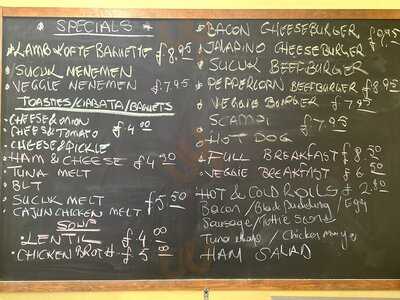 SPECIALS
LAMB KOFTE BAGUETTE £8.95
SUCUK MENEMEN
VEGGIE MENEMEN £7.95
TOASTIES/CIABATA/BAGUETS
CHEESE & ONION
CHEES & TOMATO £4.00
CHEESE & PICKLE
HAM & CHEESE £4.50
TUNA MELT
BLT
SUCUK MELT £5.50
CAJUN CHICKEN MELT
SOUP
LENTIL £4.00
CHICKEN BROTH £5.00
BACON CHEESEBURGER
JALAPINO CHEESEBURGER £9.95
SUCUK BEEFBURGER
PEPPERCORN BEEFBURGER £8.95
VEGGIE BURGER £7.95
SCAMPI £7.95
HOT DOG
FULL BREAKFAST £8.50
VEGGIE BREAKFAST £6.50
HOT & COLD ROLLS £2.80
Bacon / Black Pudding / Egg
Sausage / Tottie Scone
Tuna mayo / Chicken Mayo
HAM SALAD